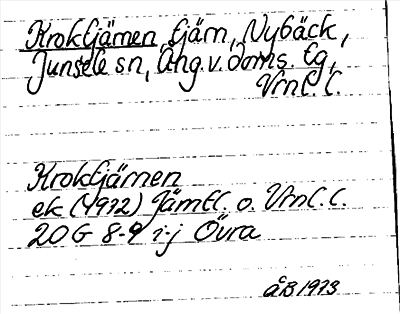 Kroktjärnen tjärn, Nybäck,
Junsele sn, Ång. v. doms. tg,
Vrnl. l.
Kroktjärnen
ek (1972) Jämtl. o. Vrnl. l.
20 G 8-9 i-j Övra
ÅB 1973